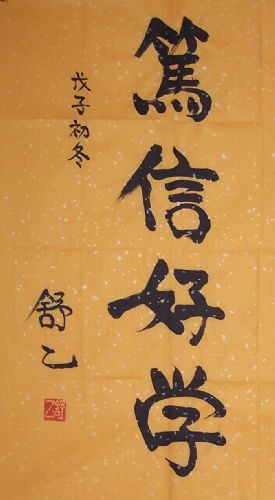 篤信好学
戊子初冬
舒乙
舒乙